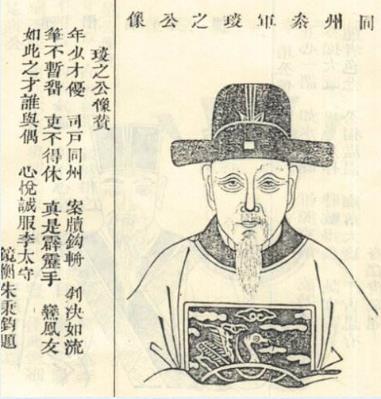 同州叅軍琰之公像
琰之公像贊
年少才優 司戶同州 案牘鈎輈 判決如流
筆不暫畱 吏不得休 真是霹靂手 鸞鳳友
如此之才誰與偶 心悅誠服李太守
鏡 朱秉鈞題